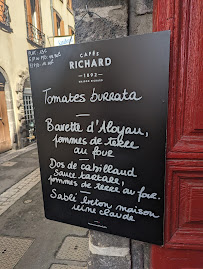 CAFÉS
RICHARD
1892
Tomates burrata
Bavette d'Aloyau,
pommes de terre
au four
Dos de cabillaud
Sauce tartare,
pommes de terre au four.
Sablé breton maison
reine claude